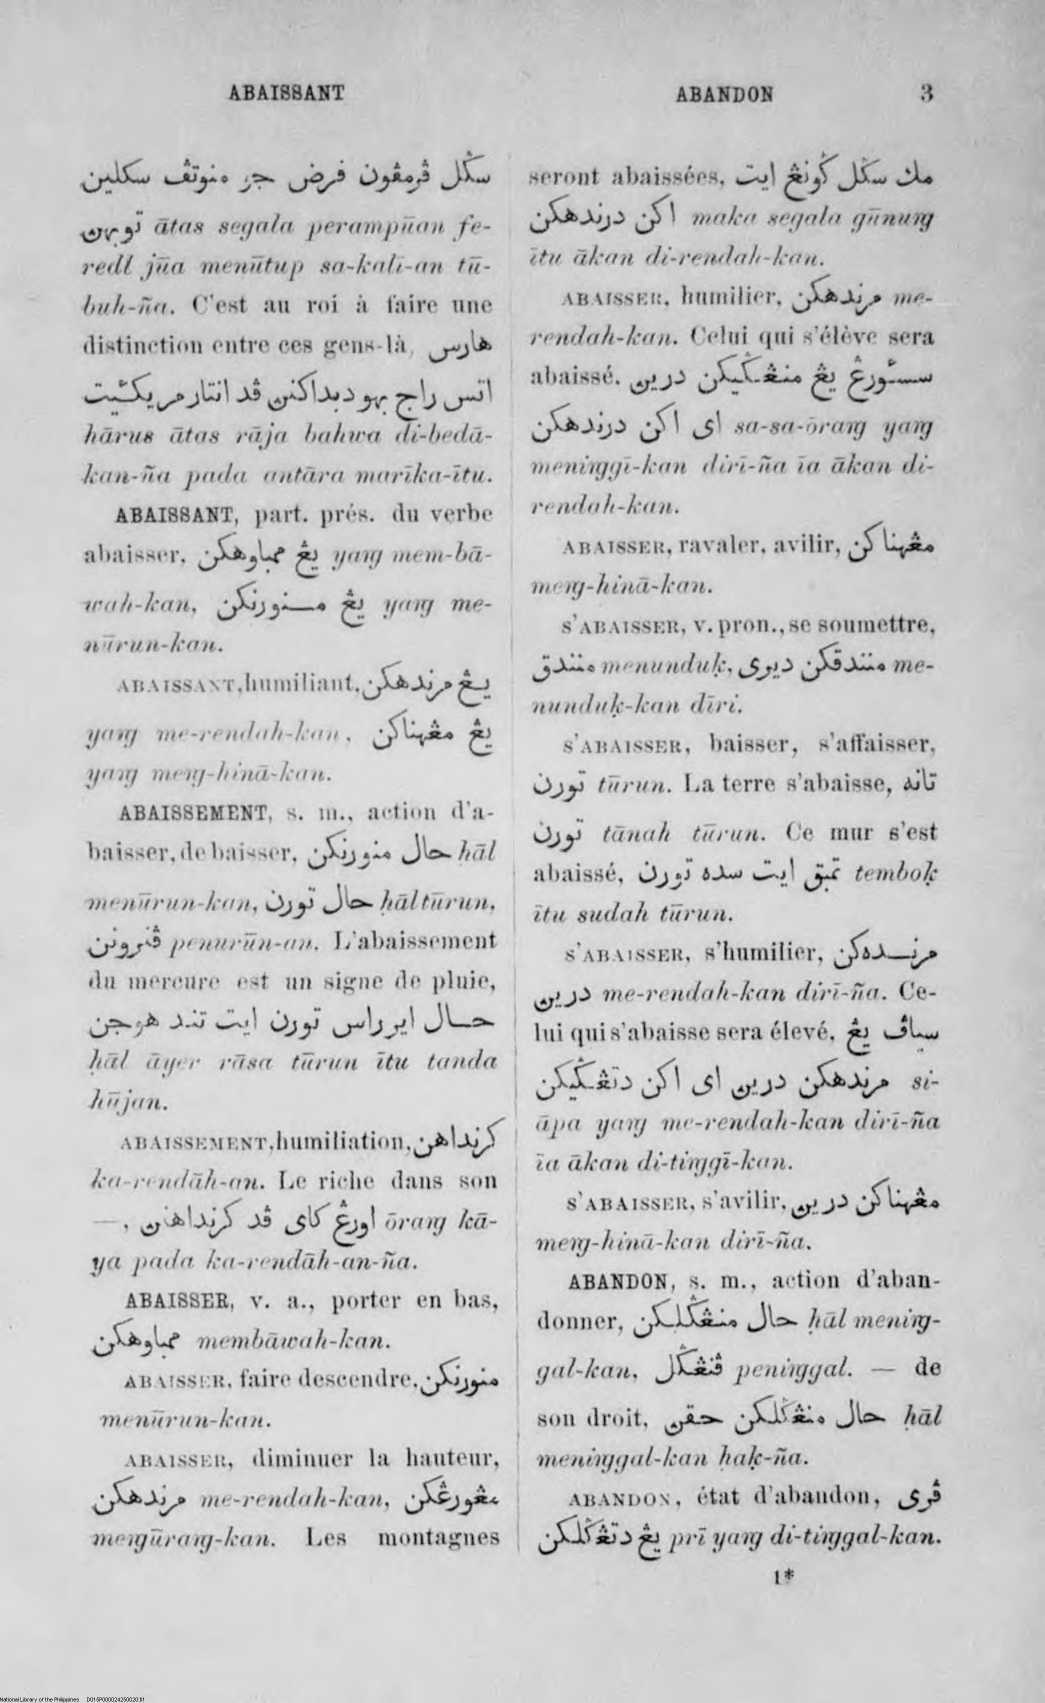 ABAISSANT
ABANDON 3
سڬل ڤرمڤون فرض جر منوتڤ سكلين
توبهن ātas segala perampūan fe-
redl jūa menūtup sa-kali-an tū-
buh-ña. C'est au roi à faire une
distinction entre ces gens-là, هارس
اتس راج بهو دبداكنن ڤد انتار مريكئيت
hārus ātas rāja bahwa di-bedā-
kan-ña pada antāra marīka-ītu.
ABAISSANT, part. prés. du verbe
abaisser, يڠ ممباوهكن yaṅg mem-bā-
wah-kan, يڠ منورنكن yaṅg me-
nūrun-kan.
ABAISSANT, humiliant, يڠ مرندهكن
yaṅg me-rendah-kan, يڠ مڠهيناكن
yaṅg meṅg-hinā-kan.
ABAISSEMENT, s. m., action d'a-
baisser, de baisser, حال منورنكن ḥāl
menūrun-kan, حال تورن ḥāl tūrun,
ڤنرونن penurūn-an. L'abaissement
du mercure est un signe de pluie,
حال اير راس تورن ايت تند هوجن
ḥāl āyer rāsa tūrun ītu tanda
hūjan.
ABAISSEMENT, humiliation, كرنداهن
ka-rendāh-an. Le riche dans son
—, اورڠ كاى ڤد كرنداهنن ōraṅg kā-
ya pada ka-rendāh-an-ña.
ABAISSER, v. a., porter en bas,
ممباوهكن membāwah-kan.
ABAISSER, faire descendre, منورنكن
menūrun-kan.
ABAISSER, diminuer la hauteur,
مرندهكن me-rendah-kan, مڠورڠكن
meṅgūraṅg-kan. Les montagnes
seront abaissées, مك سڬل ڬونڠ ايت
اكن درندهكن maka segala gūnuṅg
ītu ākan di-rendah-kan.
ABAISSER, humilier, مرندهكن me-
rendah-kan. Celui qui s'élève sera
abaissé, سسئورڠ يڠ منڠڬيكن درين
اى اكن درندهكن sa-sa-ōraṅg yaṅg
meniṅggī-kan dirī-ña īa ākan di-
rendah-kan.
ABAISSER, ravaler, avilir, مڠهيناكن
meṅg-hinā-kan.
S'ABAISSER, v. pron., se soumettre,
منندق menunduḳ, منندقكن ديرى me-
nunduḳ-kan dīri.
S'ABAISSER, baisser, s'affaisser,
تورن tūrun. La terre s'abaisse, تانه
تورن tānah tūrun. Ce mur s'est
abaissé, تمبق ايت سده تورن temboḳ
ītu sudah tūrun.
S'ABAISSER, s'humilier, مرندهكن
درين me-rendah-kan dirī-ña. Ce-
lui qui s'abaisse sera élevé, سياڤ يڠ
مرندهكن درين اى اكن دتڠڬيكن si-
āpa yaṅg me-rendah-kan dirī-ña
īa ākan di-tiṅggī-kan.
S'ABAISSER, s'avilir, مڠهيناكن درين
meṅg-hinā-kan dirī-ña.
ABANDON, s. m., action d'aban-
donner, حال منڠڬلكن ḥāl meniṅg-
gal-kan, ڤنڠڬل peniṅggal. — de
son droit, حال منڠڬلكن حقن ḥāl
meniṅggal-kan ḥaḳ-ña.
ABANDON, état d'abandon, ڤرى
يڠ دتڠڬلكن prī yaṅg di-tiṅggal-kan.
1*
National Library of the Philippines